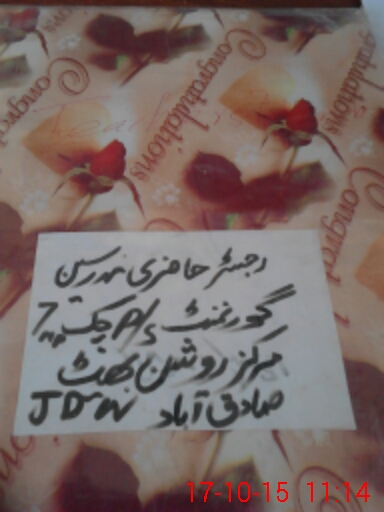 Congratulations
Congratulations
Congratulations
رجسٹر حاضری مدرسین
گورنمنٹ P/S چک 7
مرکز روشن بھٹ
صادق آباد JDW
17-10-15 11:14